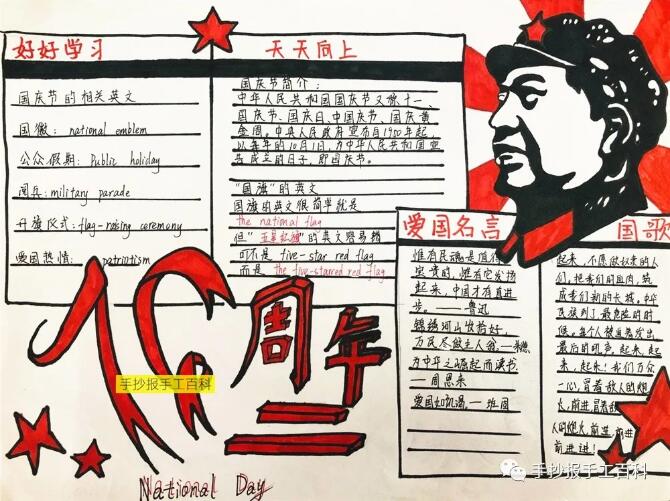 好好学习
天天向上
国庆节的相关英文
国徽：national emblem
公众假期：Public holiday
阅兵：military parade
升旗仪式：flag-raising ceremony
爱国热情：patriotism
国庆节简介：
中华人民共和国国庆节又称十一、
国庆节、国庆日、中国国庆节、国庆黄
金周。中央人民政府宣布自1950年起
以每年的10月1日，为中华人民共和国宣
告成立的日子，即国庆节。
"国旗"的英文
国旗的英文很简单就是
the national flag
但"五星红旗"的英文容易错
可不是five-star red flag
而是 the five-starred red flag
爱国名言
惟有民魂是值得
宝贵的，惟有它发扬
起来，中国才有真进
步。——鲁迅
锦绣河山收拾好，
万民尽做主人翁。—朱德
为中华之崛起而读书
—周恩来
爱国如饥渴。—班固
国歌
起来，不愿做奴隶的人
们，把我们的血肉，筑
成我们新的长城。中华
民族到了，最危险的时
候。每个人被迫着发出
最后的吼声。起来，起
来，起来！我们万众
一心，冒着敌人的炮
火，前进，冒着敌
人的炮火，前进，前进
前进，进！
76周年
手抄报手工百科
National Day
手抄报手工百科